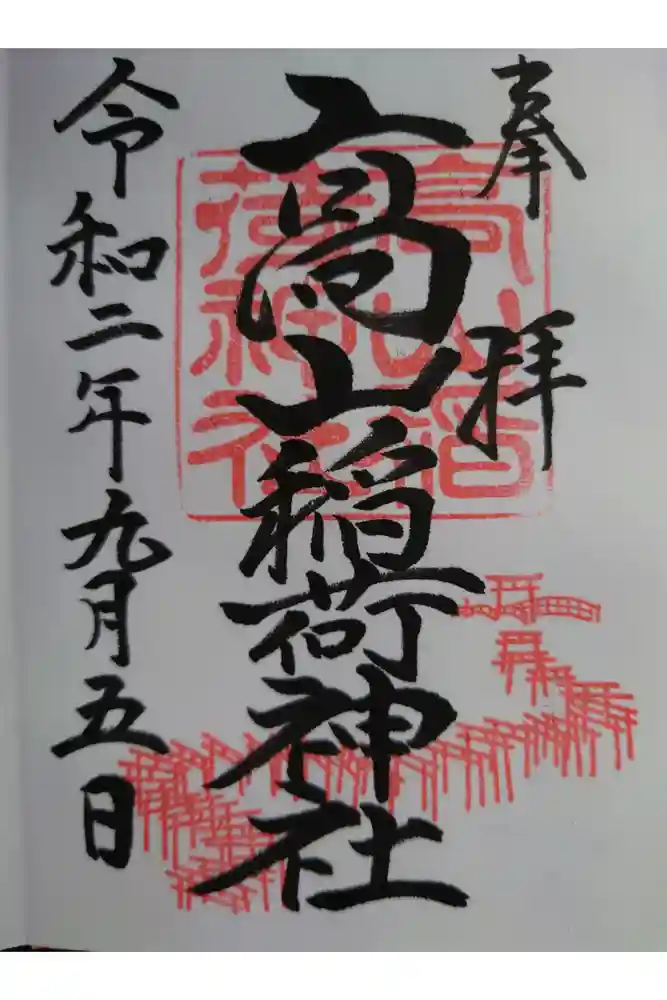 奉拝
高山稲荷神社
高山稲
荷神社
令和二年九月五日